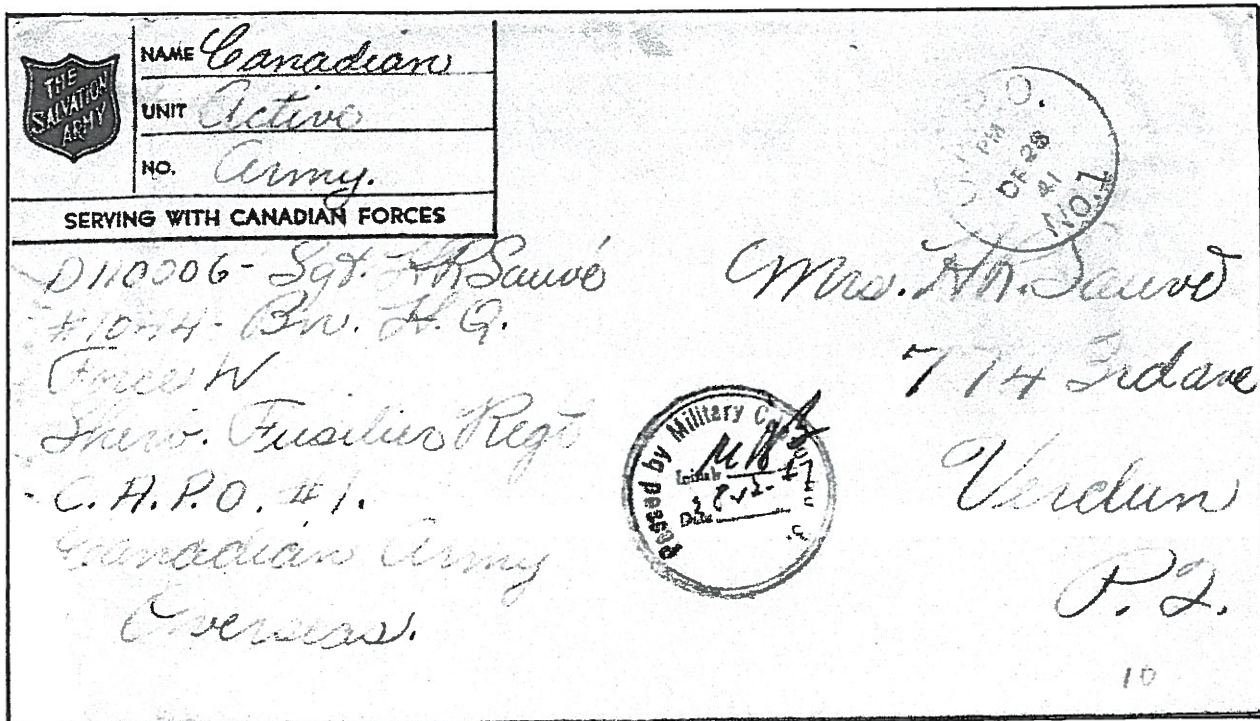 THE
SALVATION
ARMY
NAME Canadian
UNIT Active
NO. Army.
SERVING WITH CANADIAN FORCES
O.
PM
DE 28
41
NO.1
D110006 - Sgt. H R Sauvé
Bn. H. Q.
Force W
Sher. Fusilier Regt
C. A. P. O. #1.
Canadian Army
Overseas.
Passed by Military
Initials
Date
Mrs. H R. Sauvé
774 3rd ave
Verdun
P. Q.
10